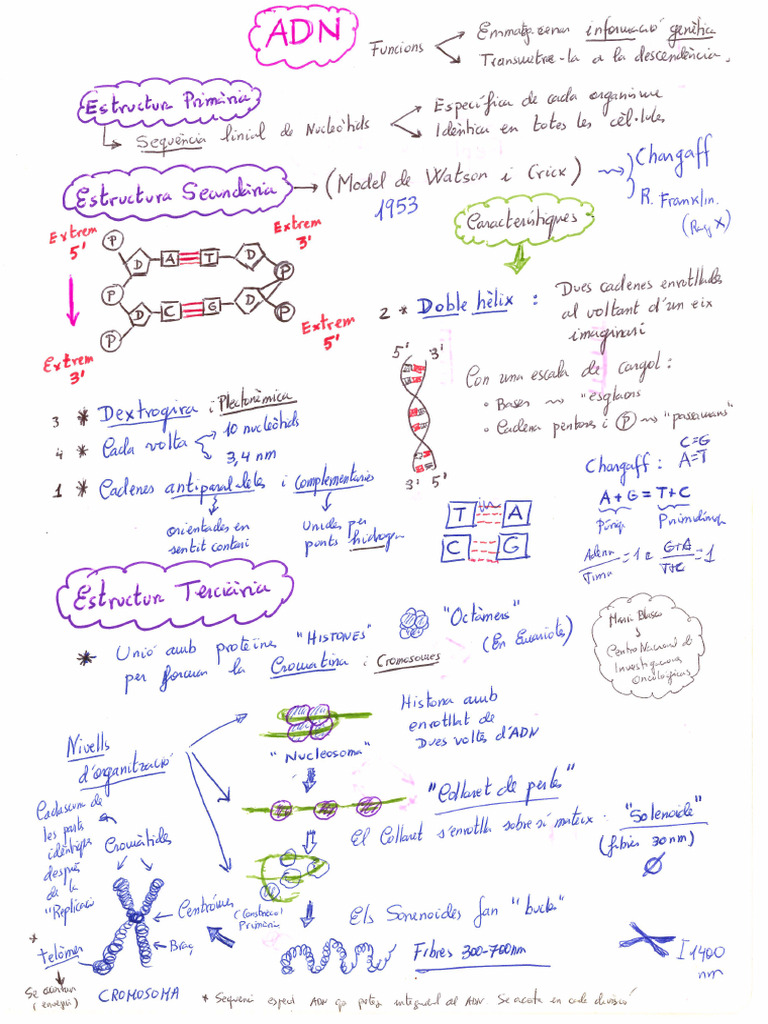 ADN
Funcions
Emmatgzemar informació genètica
Transmetre-la a la descendència.
Estructura Primària
Seqüència linial de Nucleòtids
Específica de cada organisme
Idèntica en totes les cèl·lules
Estructura Secundària
(Model de Watson i Cricx)
1953
Chargaff
R. Franxlin.
(Raig X)
Característiques
Extrem
5'
Extrem
3'
P
D A T D
P
P
D C G D
P
P
Extrem
3'
Extrem
5'
2 * Doble hèlix :
Dues cadenes enrotllades
al voltant d'un eix
imaginari
5' 3'
3' 5'
Com una escala de cargol :
• Bases "esglaons
• Cadena pentoses i P "passamans"
3 * Dextrogira i Plectonèmica
4 * Cada volta
10 nucleòtids
3,4 nm
1 * Cadenes antiparal·leles i complementàries
orientades en
sentit contari
Unides per
ponts hidrogen
T A
C G
Chargaff :
C=G
A=T
A+G = T+C
Adenina
Timina
=1
G+A
T+C
=1
Estructura Terciària
* Unió amb proteïnes "HISTONES"
per formar la Cromatina i Cromosomes
"Octàmers"
(En Eucariotes)
Maria Blasco
Centro Nacional de
Investigaciones
Oncológicas
Nivells
d'organització
"Nucleosoma"
Histona amb
enrotllat de
Dues voltes d'ADN
"Collaret de perles"
El Collaret s'enrotlla sobre si mateix.
"Solenoide"
(fibres 30nm)
Cadascuna de
les parts
idèntiques
després
de la
"Replicació
Cromàtides
Centròmer
(Constricció
Primària
Braç
Els Sonenoides fan "bucles"
Fibres 300-700nm
1400
nm
* telòmer
Se acurten
(envegir)
CROMOSOMA
* Sequenci especi ADN
integritat del ADN Se acorta en cada divisió